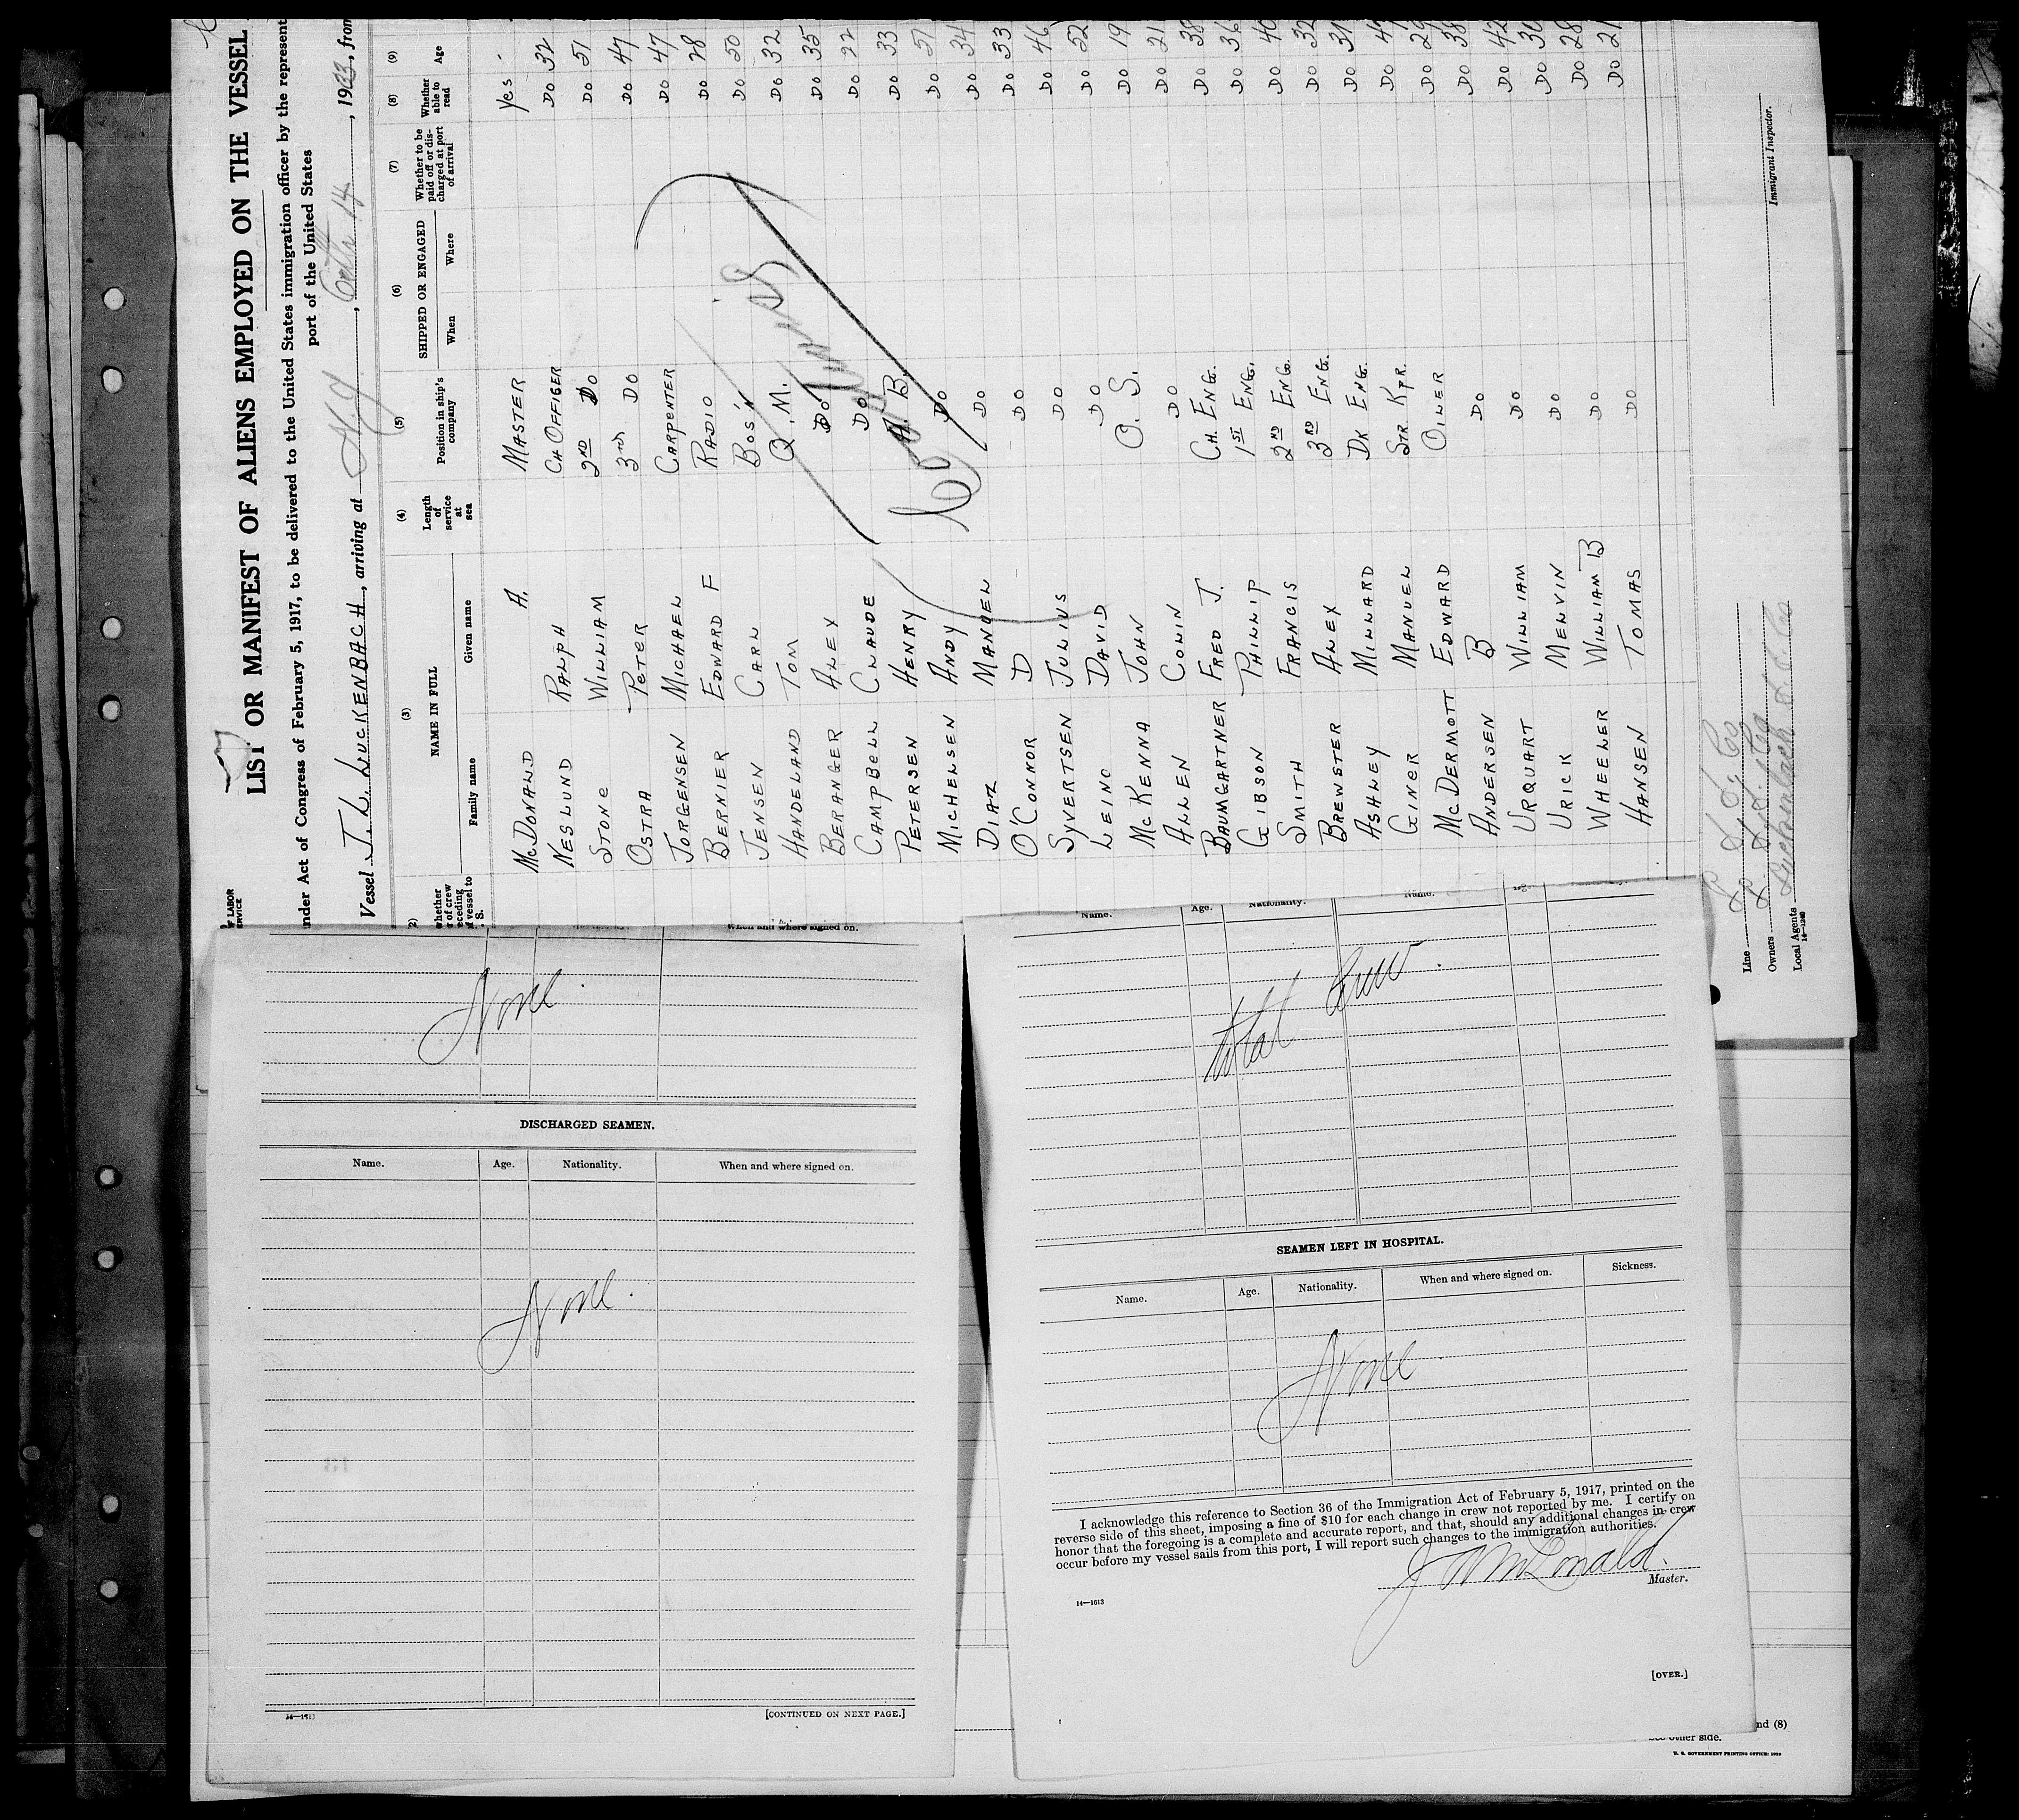 LIST OR MANIFEST OF ALIENS EMPLOYED ON THE VESSEL
nder Act of Congress of February 5, 1917, to be delivered to the United States immigration officer by the represent
port of the United States
Vessel J. L. LUCKENBACH, arriving at N.Y., 14, 1933, from
F LABOR
ERVICE
(3) (4) (5) (6) (7) (8) (9)
NAME IN FULL Length of service at sea Position in ship's company SHIPPED OR ENGAGED Whether to be paid off or discharged at port of arrival Whether able to read Age
Family name Given name When Where
McDONALD A. MASTER Yes -
NESLUND RALPH CH OFFICER DO 32
STONE WILLIAM 2ND DO DO 51
OSTRA PETER 3RD DO DO 47
JORGENSEN MICHAEL CARPENTER DO 47
BERNIER EDWARD F RADIO DO 28
JENSEN CARL BOS'N DO 50
HANDELAND TOM Q.M. DO 32
BERANGER ALEX DO DO 35
CAMPBELL CLAUDE DO DO 22
PETERSEN HENRY A B. DO 33
MICHELSEN ANDY DO DO 51
DIAZ MANUEL DO DO 34
O'CONNOR D DO DO 33
SYVERTSEN JULIUS DO DO 46
LEINO DAVID DO DO 52
McKENNA JOHN O. S. DO 19
ALLEN COLIN DO DO 21
BAUMGARTNER FRED J. CH. ENG. DO 38
GIBSON PHILLIP 1ST ENG. DO 36
SMITH FRANCIS 2ND ENG. DO 40
BREWSTER ALEX 3RD ENG. DO 32
ASHLEY MILLARD DK ENG. DO 31
GINER MANUEL STR KPR. DO
McDERMOTT EDWARD OILER DO 29
ANDERSEN B DO DO 38
URQUART WILLIAM DO DO 42
URICK MELVIN DO DO 30
WHEELER WILLIAM B DO DO 28
HANSEN TOMAS DO DO 21
Line L. S. S. Co
Owners L. S. S. Co
Local Agents Luckenbach S. S. Co
14—1240
Immigrant Inspector.
When and where signed on.
None.
DISCHARGED SEAMEN.
Name. Age. Nationality. When and where signed on.
None.
[CONTINUED ON NEXT PAGE.]
Name. Age. Nationality. Name.
total Crew.
SEAMEN LEFT IN HOSPITAL.
Name. Age. Nationality. When and where signed on. Sickness.
None
I acknowledge this reference to Section 36 of the Immigration Act of February 5, 1917, printed on the
reverse side of this sheet, imposing a fine of $10 for each change in crew not reported by me. I certify on
honor that the foregoing is a complete and accurate report, and that, should any additional changes in crew
occur before my vessel sails from this port, I will report such changes to the immigration authorities.
Master.
14—1613
[OVER.]
nd (8)
other side.
U. S. GOVERNMENT PRINTING OFFICE: 1929